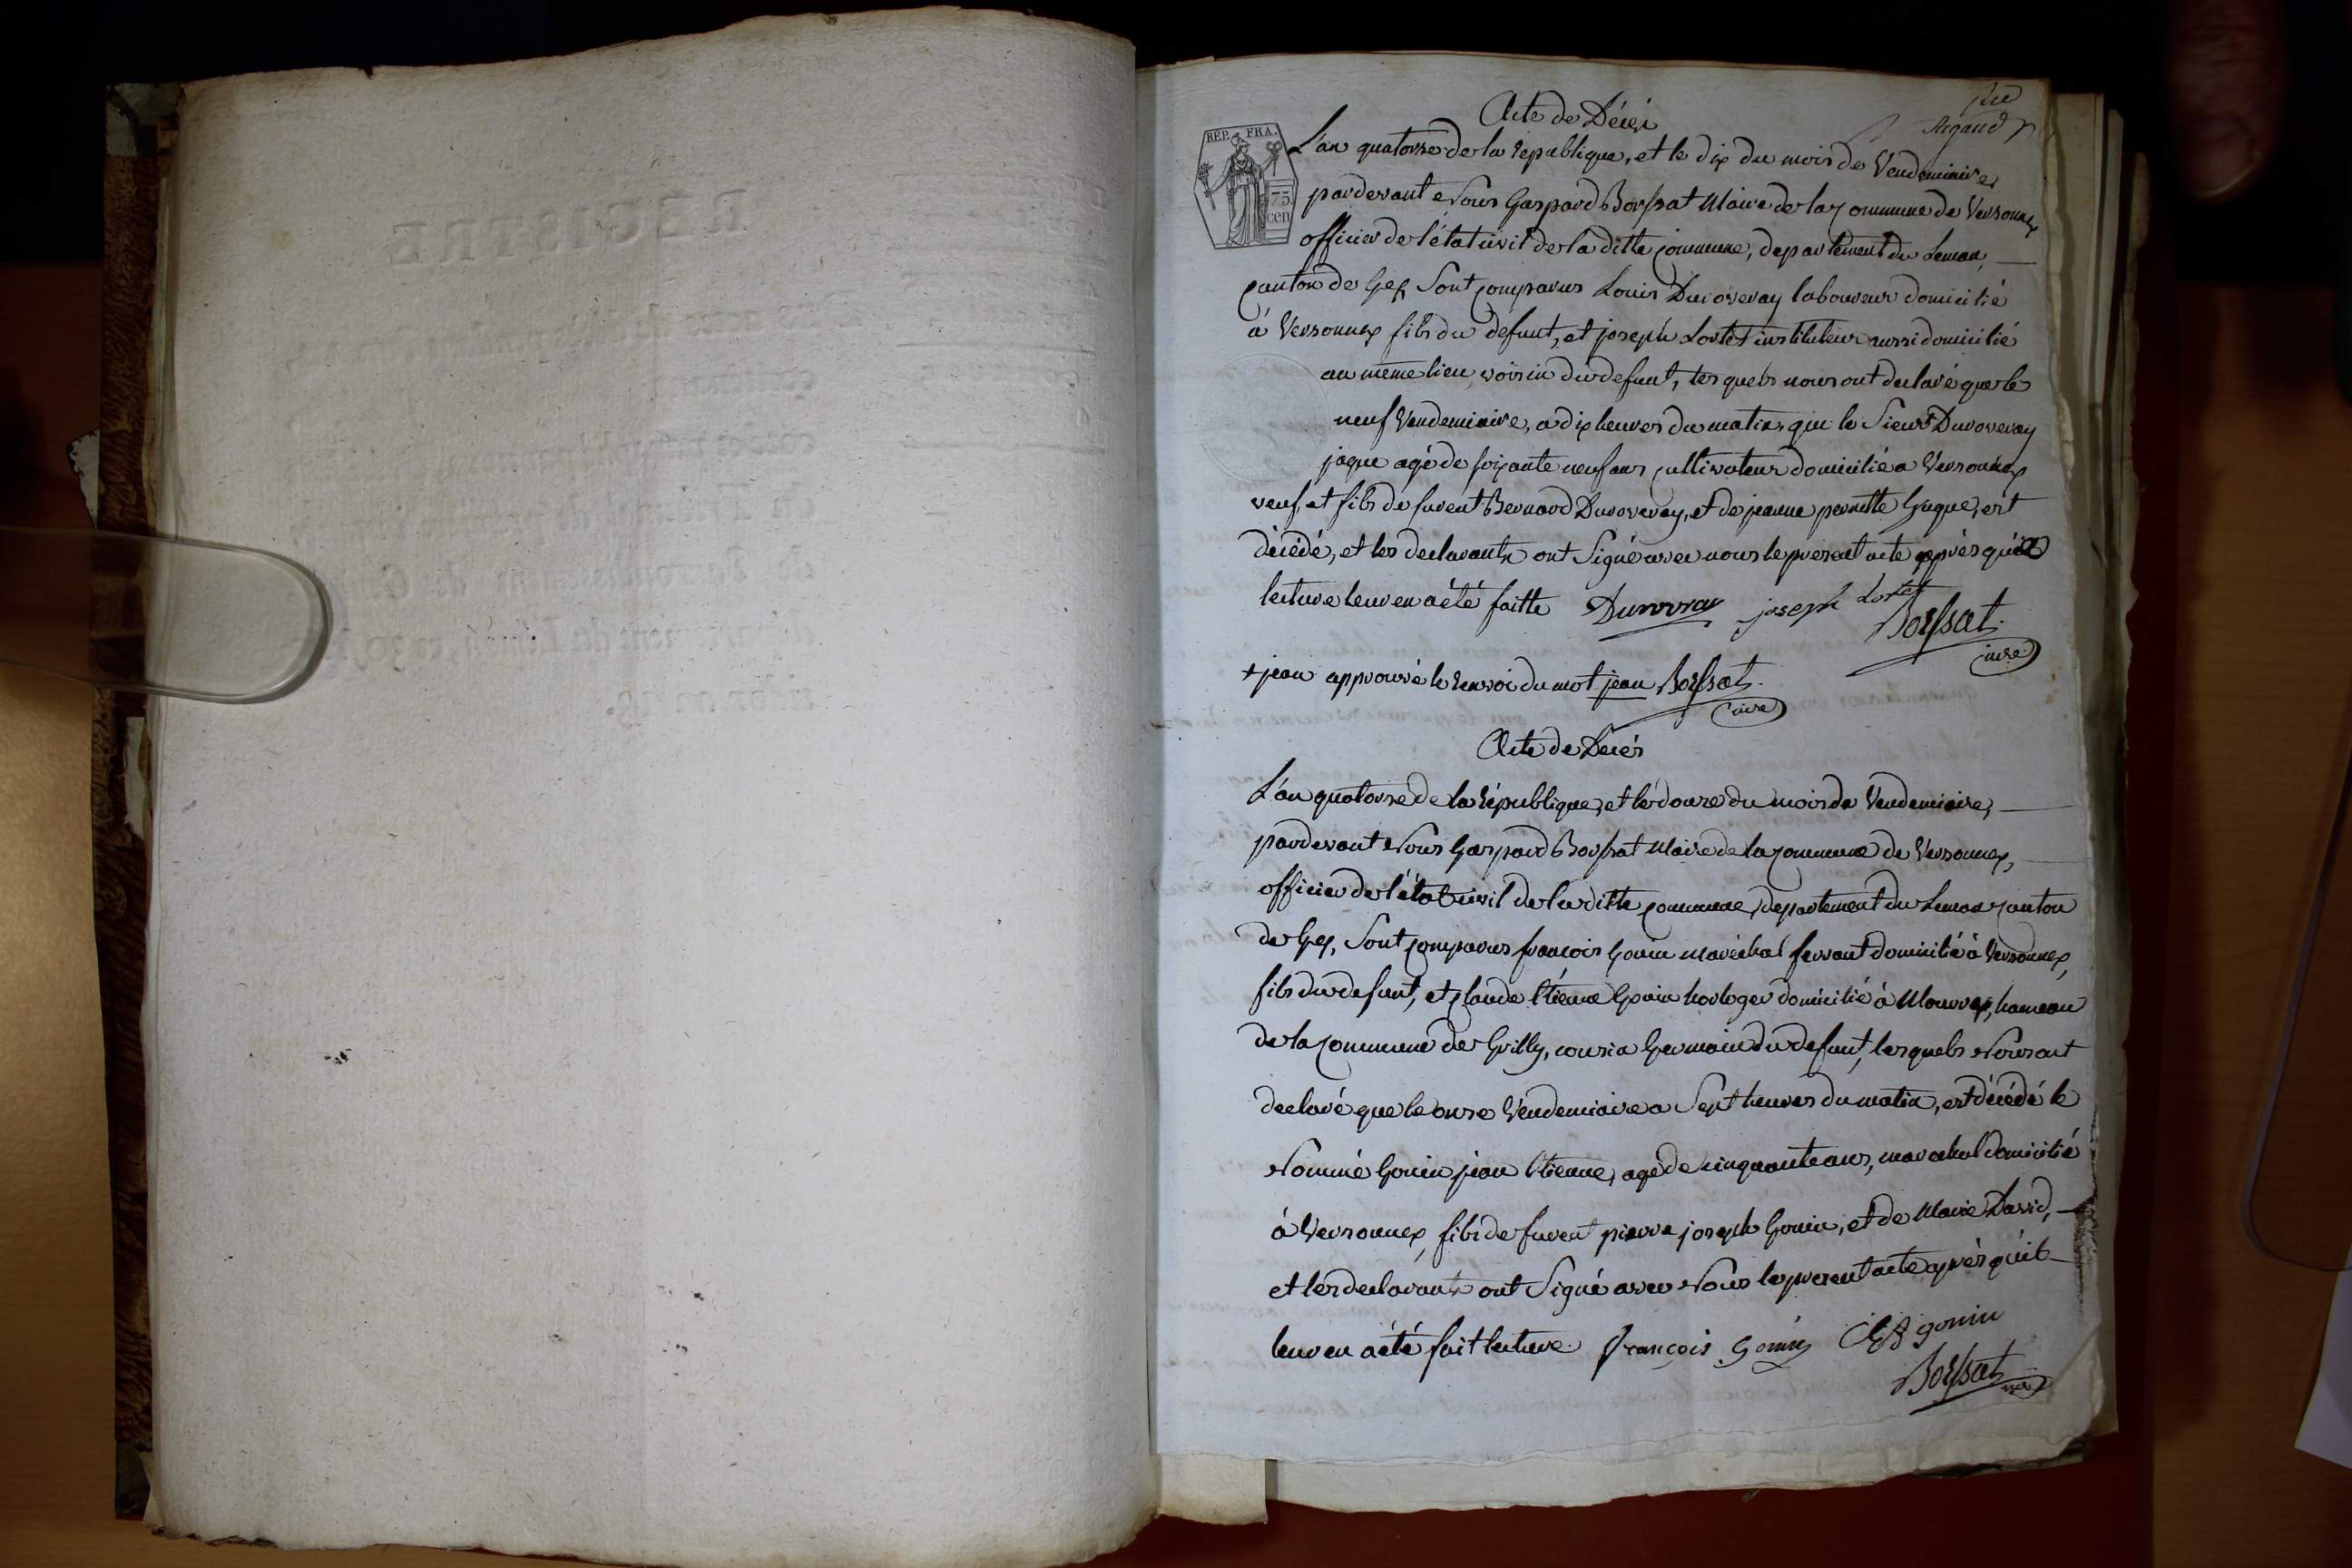 Acte de Décés
Argand
REP. FRA.
75.
cen
L'an quatorze de la République, et le dix du mois de Vendemiaire,
pardevant Nous Gaspard Borssat Maire de la Commune de Versonnex
officier de l'état civil de la ditte Commune, departement du Leman,
Canton de Gex Sont Comparus Louis Duroveray laboureur domicilié
à Versonnex fils du défunt, et joseph Lortet instituteur aussi domicilié
au même lieu, voisin du defunt, lesquels nous ont declaré que le
neuf Vendemiaire, a dix heures du matin, que le Sieur + Duroveray
jaque agé de soixante neuf ans Cultivateur domicilié a Versonnex
veuf, et fils de furent Bernard Duroveray, et de jeanne pernette Gugue, est
décédé, et les declarants ont Signé avec nous le present acte après que
lecture leur en a été faitte Duroveray joseph Lortet
Borssat
Maire
+ jean approuvé le renvoi du mot jean Borssat
Maire
Acte de Decés
L'an quatorze de la République, et le douze du mois de Vendemiaire,
pardevant Nous Gaspard Borssat Maire de la Commune de Versonnex,
officier de l'état civil de la ditte Commune, departement du Leman Canton
de Gex, Sont Comparus francois Gonin maréchal ferrant domicilié à Versonnex,
fils du defunt, et Claude Etienne Gonin horloger domicilié à Mourex, hameau
de la Commune de Grilly, cousin Germain du defunt, lesquels Nous ont
declaré que le onze Vendemiaire a Sept heures du matin, est décédé le
Nommé Gonin jean Etienne, agé de cinquante ans, marechal domicilié
à Versonnex, fils de furent pierre joseph Gonin, et de Marie David,
et les declarants ont Signé avec Nous le present acte après qu'il
leur en a été fait lecture. François Gonin CE gonin
Borssat